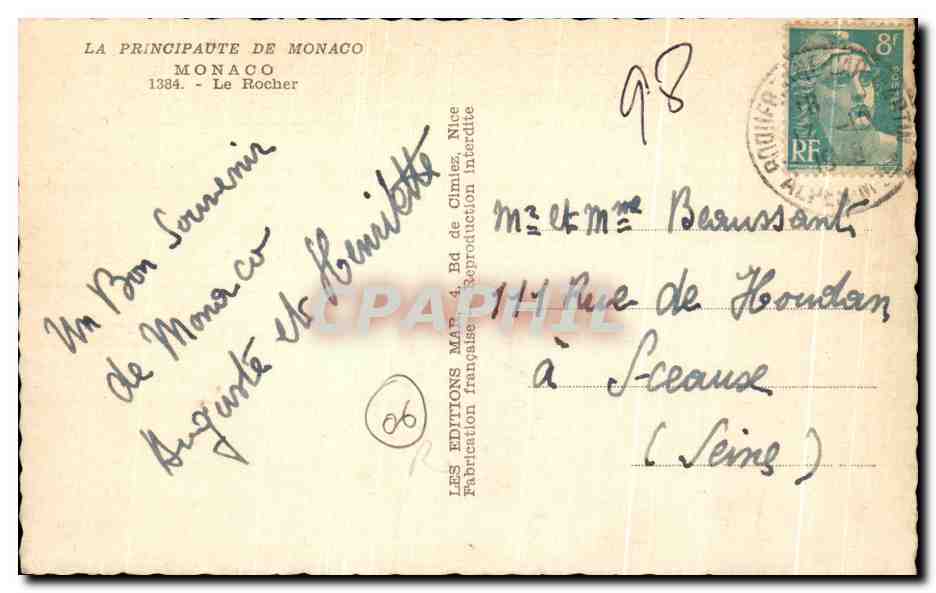 LA PRINCIPAUTE DE MONACO
MONACO
1384. - Le Rocher
Un Bon Souvenir
de Monaco
Auguste et Henriette
LES EDITIONS MAR, 4, Bd de Cimiez, Nice
Fabrication française - Reproduction interdite
98
8f
RF
Mr et Mme Beaussant
111 Rue de Houdan
à Sceaux
(Seine)
06
CPAPHIL